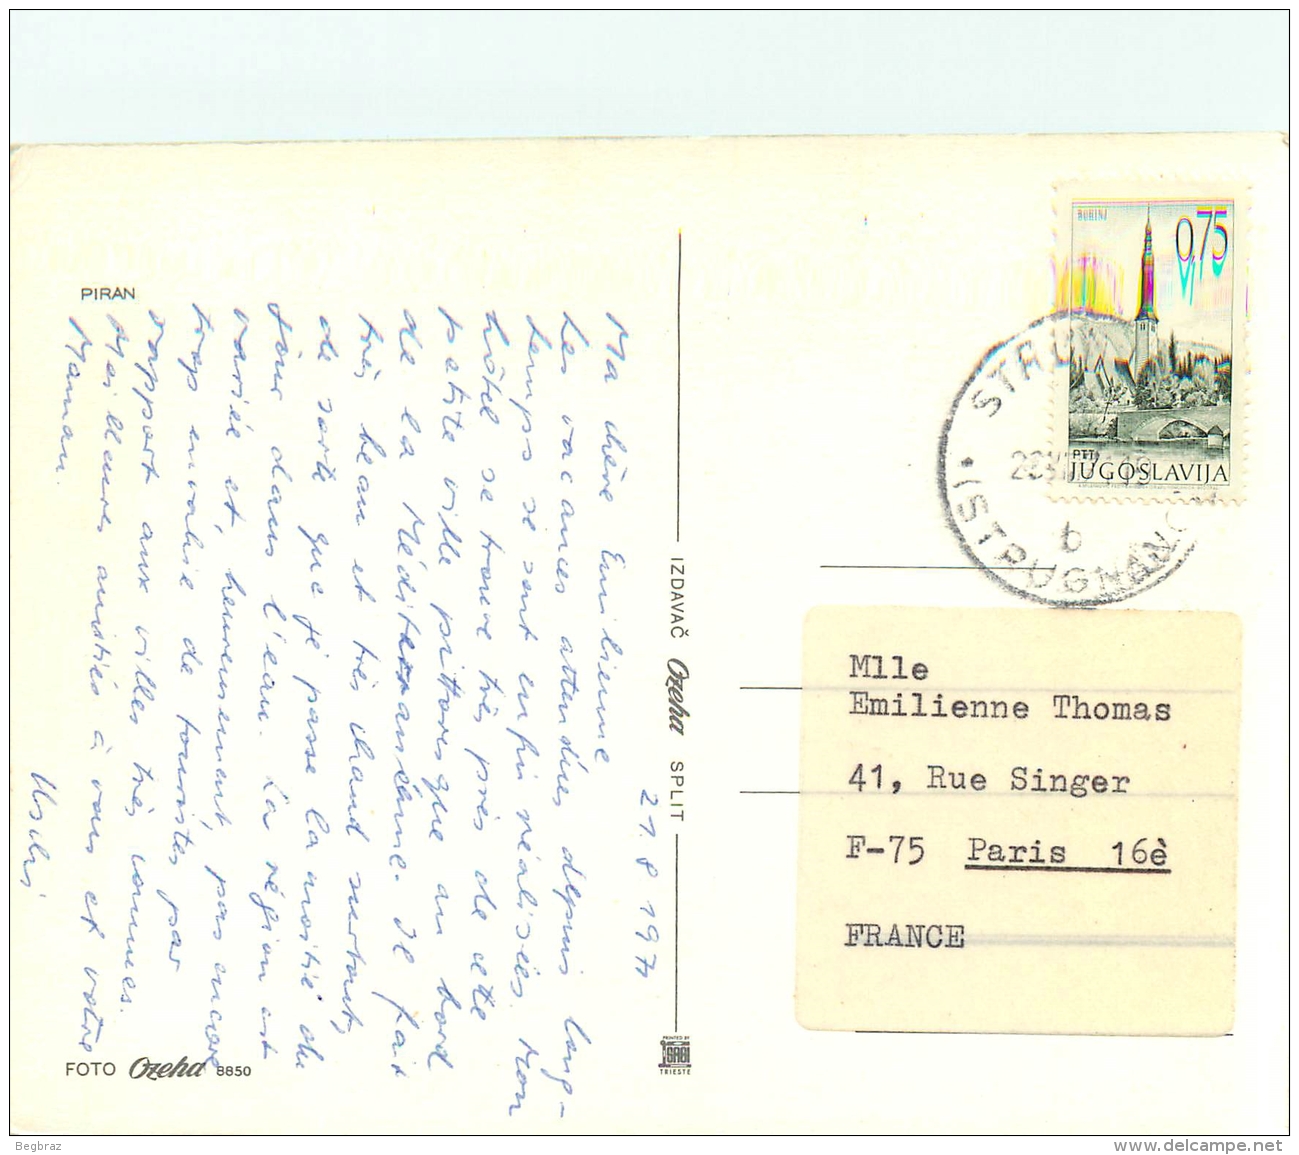 PIRAN
21. 8 1971
Ma chère Emilienne
Les vacances attendues depuis long-
temps se sont enfin réalisées. Mon
hôtel se trouve très près de cette
petite ville pittoresque au bord
de la Méditerranéenne. Il fait
très beau et très chaud surtout,
de sorte que je passe la moitié du
jour dans l'eau. La région est
variée et, heureusement pas encore
trop envahie de touristes par
rapport aux villes très connues.
Meilleures amitiés à vous et votre
Maman.
Ursula
FOTO Ozeha 8850
IZDAVAČ Ozeha SPLIT
PRINTED BY
GRBI
TRIESTE
BOHINJ
0,75
PTT
JUGOSLAVIJA
b
Mlle
Emilienne Thomas
41, Rue Singer
F-75 Paris 16è
FRANCE
Begbraz
www.delcampe.net